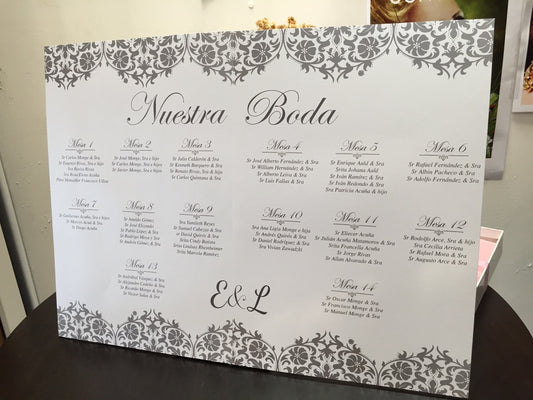 Nuestra Boda
Mesa 1
Sr Carlos Monge & Sra
Sr Eugenio Rivas, Sra e hijo
Sra Rocío Rivas
Sra Rosa Elena Acuña
Pbro Monseñor Francisco Ulloa
Mesa 2
Sr José Monge, Sra e hijo
Sr Carlos Monge, Sra e hijos
Sr Javier Monge, Sra e hijo
Mesa 3
Sr Julio Calderón & Sra
Sr Kenneth Baquero & Sra
Sr Renato Rivas, Sra e hijo
Sr Carlos Quintana & Sra
Mesa 4
Sr José Alberto Fernández & Sra
Sr William Hernández & Sra
Sr Alberto Leiva & Sra
Sr Luis Fallas & Sra
Mesa 5
Sr Enrique Auld & Sra
Srita Johana Auld
Sr Iván Ramírez & Sra
Sr Iván Redondo & Sra
Sra Patricia Acuña & hijo
Mesa 6
Sr Rafael Fernández & Sra
Sr Albin Pacheco & Sra
Sr Adolfo Fernández & Sra
Mesa 7
Sr Guillermo Acuña, Sra e hijos
Sr Marcos Acuñ & Sra
Sr Diego Acuña
Mesa 8
Sr Junidis Gómez
Sr José Elizondo
Sr Pablo López & Sra
Sr Rodrigo Mena & Sra
Sr Andrés Gómez & Sra
Mesa 9
Sra Yamileth Reyes
Sr Samuel Cabezas & Sra
Sr David Quirós & Sra
Srita Cindy Batista
Srita Lindsay Rischenheimer
Srita Marcela Ramírez
Mesa 10
Sra Ana Ligia Monge e hijo
Sr Andrés Quirós & Sra
Sr Daniel Rodríguez & Sra
Sra Vivian Zawadzki
Mesa 11
Sr Eliecer Acuña
Sr Julián Acuña Matamoros & Sra
Srita Francella Acuña
Sr Jorge Rivas
Sr Allan Alvarado & Sra
Mesa 12
Sr Rodolfo Arce, Sra & hijo
Sr Carlos Arce & Sra
Sr Rafael Mora & Sra
Sr Augusto Arce & Sra
Mesa 13
Sr Asdrúbal Vásquez & Sra
Sr Alejandro Cedeño & Sra
Sr Ricardo Monge & Sra
Sr Víctor Salas & Sra
E&L
Mesa 14
Sr Oscar Monge & Sra
Sr Francisco Monge & Sra
Sr Manuel Monge & Sra